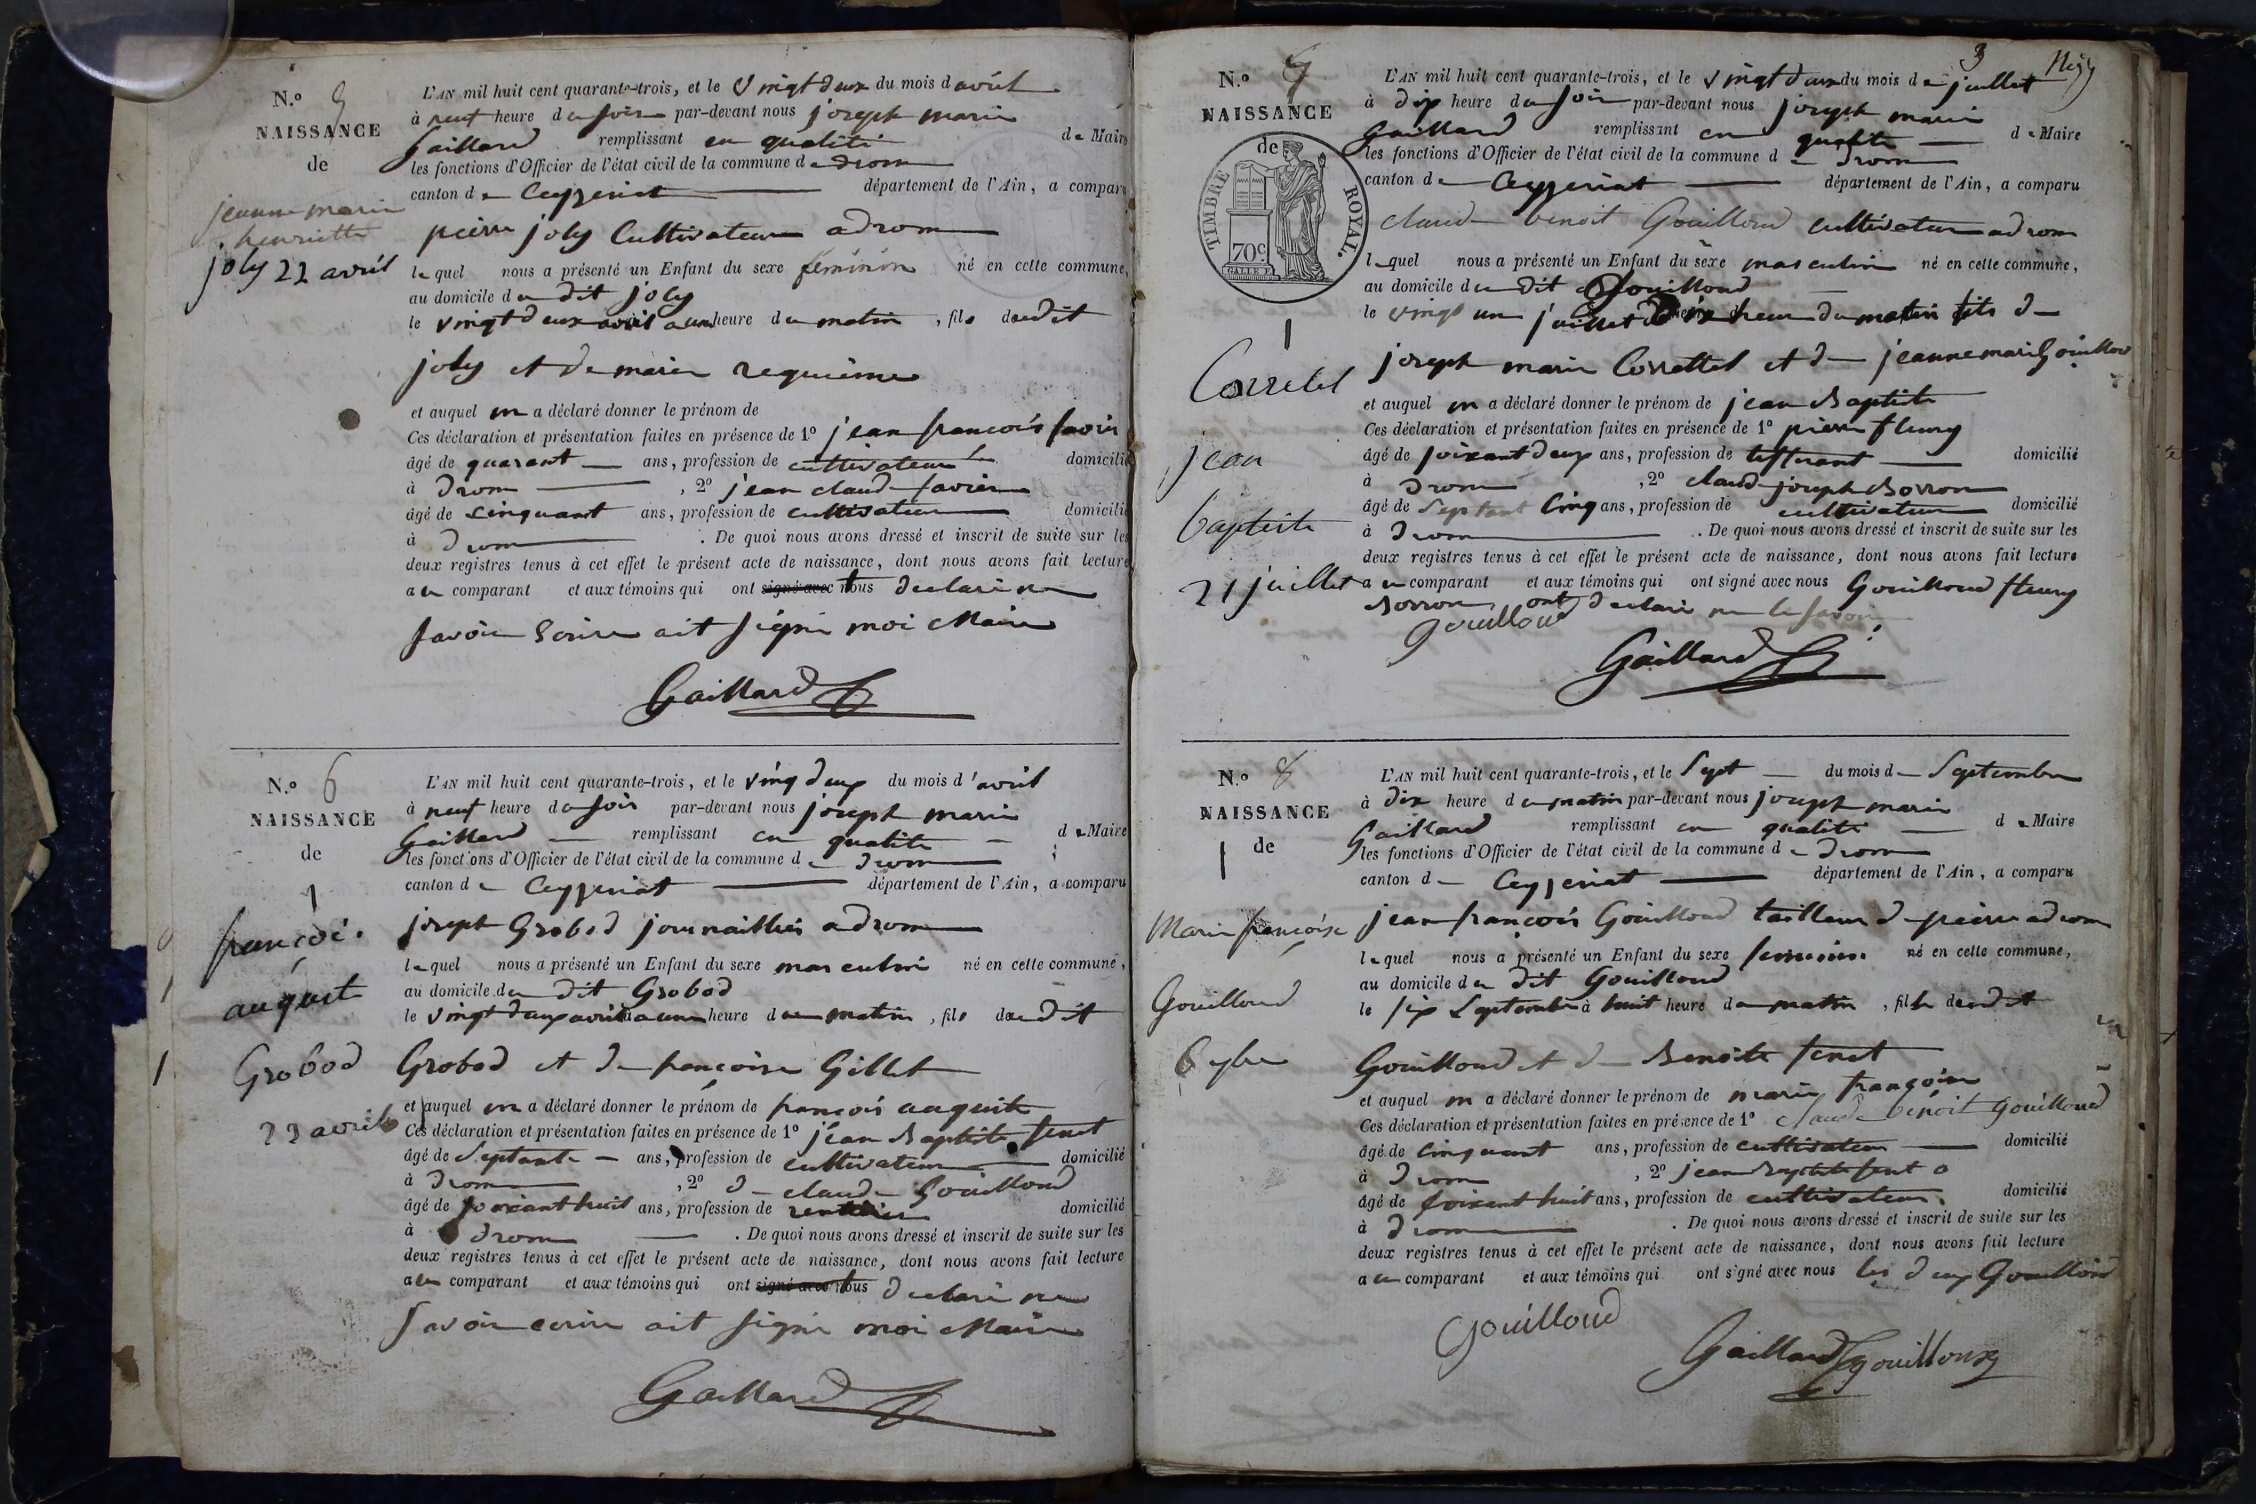 N.o 5
NAISSANCE
de
jeanne marie
henriette
joly 22 avril
L'AN mil huit cent quarante-trois, et le vingt deux du mois d avril
à neuf heure du soir par-devant nous joseph marie
Gaillard remplissant en qualité de Maire
les fonctions d'Officier de l'état civil de la commune de drom
canton de Ceyzeriat département de l'Ain, a comparu
pierre joly Cultivateur a drom
lequel nous a présenté un Enfant du sexe féminin né en cette commune,
au domicile du dit joly
le vingt deux avril a une heure du matin, fils dudit
joly et de marie
et auquel on a déclaré donner le prénom de
Ces déclaration et présentation faites en présence de 1o jean francois savin
âgé de quarant ans, profession de cultivateur domicilié
à drom, 2o jean claud
âgé de cinquant ans, profession de cultivateur domicilié
à drom. De quoi nous avons dressé et inscrit de suite sur les
deux registres tenus à cet effet le présent acte de naissance, dont nous avons fait lecture
au comparant et aux témoins qui ont signé avec nous declaré ne
savoir Ecrire ait signé moi Maire
Gaillard
N.o 6
NAISSANCE
de
1
françoi.
august
Grobod
22 avril
L'AN mil huit cent quarante-trois, et le vingt deux du mois d'avril
à neuf heure du soir par-devant nous joseph marie
Gaillard remplissant en qualité de Maire
les fonctions d'Officier de l'état civil de la commune de drom
canton de Ceyzeriat département de l'Ain, a comparu
joseph Grobod journaillier a drom
lequel nous a présenté un Enfant du sexe masculin né en cette commune,
au domicile du dit Grobod
le vingt deux avril a une heure du matin, fils dudit
Grobod et de françoise Gillet
et auquel on a déclaré donner le prénom de françois auguste
Ces déclaration et présentation faites en présence de 1o jean Baptiste fenet
âgé de Septante ans, profession de cultivateur domicilié
à drom, 2o d claude Gouilloud
âgé de soixant huit ans, profession de rentier domicilié
à drom. De quoi nous avons dressé et inscrit de suite sur les
deux registres tenus à cet effet le présent acte de naissance, dont nous avons fait lecture
au comparant et aux témoins qui ont signé avec nous declaré ne
Savoir ecrire ait signé moi Maire
Gaillard
3
N.o 7
NAISSANCE
de
TIMBRE ROYAL.
70c.
1
Corretel
jean
baptiste
21 juillet
L'AN mil huit cent quarante-trois, et le vingt deux du mois de juillet
à dix heure du soir par-devant nous joseph marie
Gaillard remplissant en qualité de Maire
les fonctions d'Officier de l'état civil de la commune de drom
canton de Ceyzeriat département de l'Ain, a comparu
claude benoit Gouilloud cultivateur a drom
lequel nous a présenté un Enfant du sexe masculin né en cette commune,
au domicile du dit Gouilloud
le vingt un juillet a dix heure du matin fils de
joseph marie Correttel et de jeanne marie Gouilloud
et auquel on a déclaré donner le prénom de jean Baptiste
Ces déclaration et présentation faites en présence de 1o pierre fleury
âgé de soixant deux ans, profession de tisserant domicilié
à drom, 2o claud joseph Borron
âgé de Septant Cinq ans, profession de cultivateur domicilié
à drom. De quoi nous avons dressé et inscrit de suite sur les
deux registres tenus à cet effet le présent acte de naissance, dont nous avons fait lecture
au comparant et aux témoins qui ont signé avec nous Gouilloud fleury
Borron ont declaré ne le savoir
gouilloud
Gaillard
N.o 8
NAISSANCE
de
1
Marie françoise
Gouilloud
6 7bre
L'AN mil huit cent quarante-trois, et le Sept du mois de Septembre
à dix heure du matin par-devant nous joseph marie
Gaillard remplissant en qualité de Maire
les fonctions d'Officier de l'état civil de la commune de drom
canton de Ceyzeriat département de l'Ain, a comparu
jean françois Gouilloud tailleur d pierre a drom
lequel nous a présenté un Enfant du sexe feminin né en cette commune,
au domicile du dit Gouilloud
le six Septembre à huit heure du matin, fille dudit
Gouilloud et de Benoite fenet
et auquel on a déclaré donner le prénom de marie françoise
Ces déclaration et présentation faites en présence de 1o claude benoit gouilloud
âgé de cinquant ans, profession de cultivateur domicilié
à drom, 2o jean Baptiste fenet
âgé de soixant huit ans, profession de cultivateur domicilié
à drom. De quoi nous avons dressé et inscrit de suite sur les
deux registres tenus à cet effet le présent acte de naissance, dont nous avons fait lecture
au comparant et aux témoins qui ont signé avec nous les deux Gouilloud
gouilloud
Gaillard gouilloux